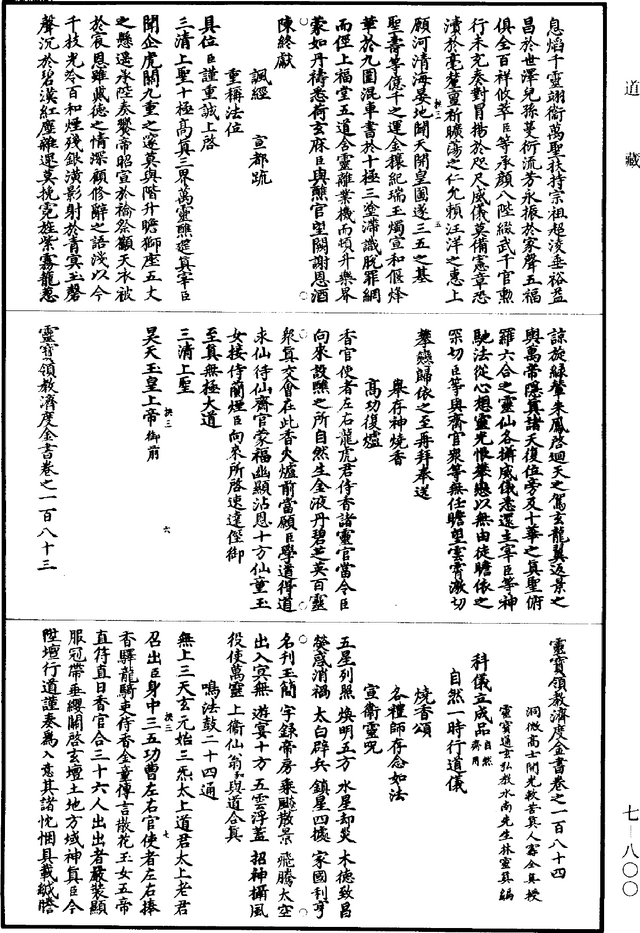 道藏
七—八〇〇
息焰千靈翊衛萬聖扶持宗祖超淩垂裕益
昌於世澤兒孫蔓衍流芳永振於家聲五福
俱全百祥攸萃臣等承顏八陛綴武千官勲
行未充奏對冐揚於咫尺威儀莫備憲章恐
瀆於毫釐亶祈曠蕩之仁允賴汪洋之惠上
願河清海晏地闢天開皇圖遂三五之基
聖壽等億千之運金穰紀瑞玉燭宣和偃烽
華於九圍混車書於十極三塗滯識脫罪網
而徑上福堂五道含靈離業機而頓升樂界
蒙如丹禱悉荷玄庥臣與醮官望闕謝恩酒
陳終獻
諷經 宣都疏
重稱法位
具位臣謹重誠上啓
三清上聖十極高真三界萬靈醮筵真宰臣
聞企虎關九重之邃莫與階升瞻獅座五丈
之懸還承陟奏饗帝昭宣於禴祭觀天永被
於衮恩雖貮德之情深顧修辭之語淺以今
千枝光冷百和煙殘銀潢影射於青冥玉磬
聲沉於碧漢紅塵難逗莫挽霓旌紫霧龍葱
諒旋綠輦朱鳳啓迴天之駕玄龍翼返景之
輿萬帝隱真諸天復位旁及十華之真聖俯
羅六合之靈仙各攝威儀悉還主宰臣等神
馳法從心想靈光悵攀戀以無由徒瞻依之
罙切臣等與齋官衆等無任瞻望雲霄激切
攀戀歸依之至再拜奉送
舉存神燒香
高功復爐
香官使者左右龍虎君侍香諸靈官當令臣
向來設醮之所自然生金液丹碧芝英百靈
衆真交會在此香火爐前當願臣學道得道
求仙得仙齋官蒙福幽顯沾恩十方仙童玉
女接侍蘭煙臣向來所啓速達徑御
至真無極大道
三清上聖
昊天玉皇上帝御前
靈寶領教濟度金書卷之一百八十三
靈寶領教濟度金書卷之一百八十四
洞微高士開光救苦真人甯全真授
靈寶通玄弘教水南先生林靈真編
科儀立成品自然齋用
自然一時行道儀
燒香頌
各禮師存念如法
宣衛靈呪
五星列照 煥明五方 水星却災 木德致昌
熒惑消禍 太白辟兵 鎮星四據 家國利亨
名刊玉簡 字錄帝房 乘飈散景 飛騰太空
出入冥無 遊宴十方 五雲浮蓋 招神攝風
役使萬靈 上衛仙翁 和與道合真
鳴法鼓二十四通
無上三天玄元始三炁太上道君太上老君
召出臣身中三五功曹左右官使者左右捧
香驛龍騎吏侍香金童傳言散花玉女五帝
直符直日香官合三十六人出出者嚴裝顯
服冠帶垂纓關啓玄壇土地方域神真臣今
陞壇行道謹奏爲入意其諸忱悃具載緘謄